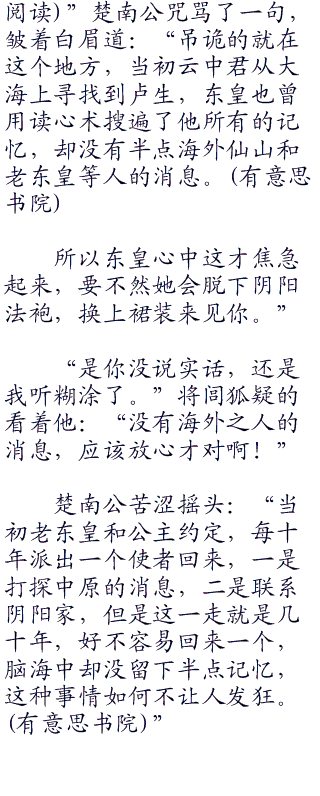 阅读)”楚南公咒骂了一句，
皱着白眉道：“吊诡的就在
这个地方，当初云中君从大
海上寻找到卢生，东皇也曾
用读心术搜遍了他所有的记
忆，却没有半点海外仙山和
老东皇等人的消息。(有意思
书院)
所以东皇心中这才焦急
起来，要不然她会脱下阴阳
法袍，换上裙装来见你。”
“是你没说实话，还是
我听糊涂了。”将闾狐疑的
看着他：“没有海外之人的
消息，应该放心才对啊！”
楚南公苦涩摇头：“当
初老东皇和公主约定，每十
年派出一个使者回来，一是
打探中原的消息，二是联系
阴阳家，但是这一走就是几
十年，好不容易回来一个，
脑海中却没留下半点记忆，
这种事情如何不让人发狂。
(有意思书院)”